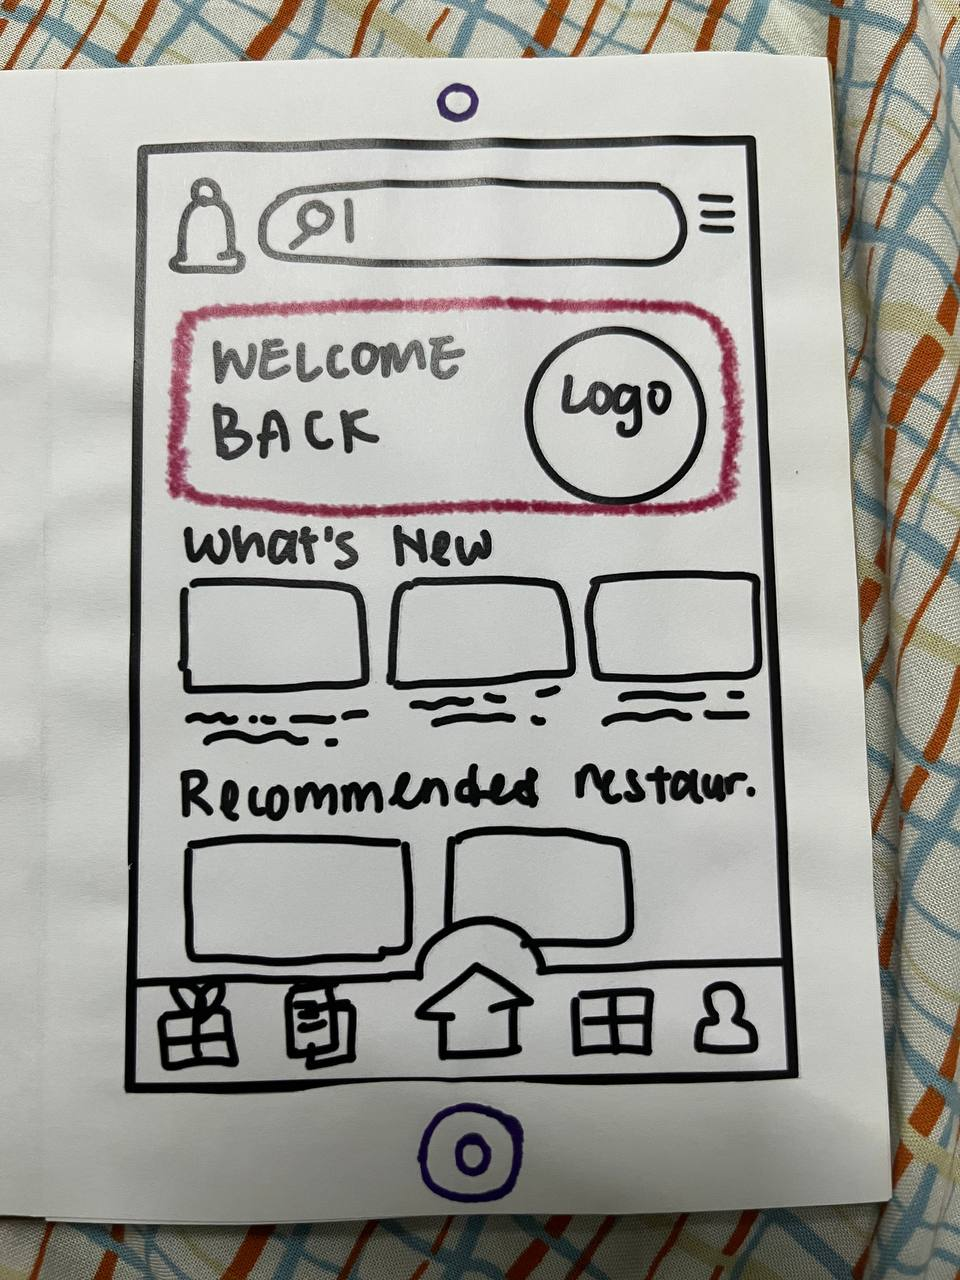 WELCOME
BACK
Logo
What's New
Recommended restaur.